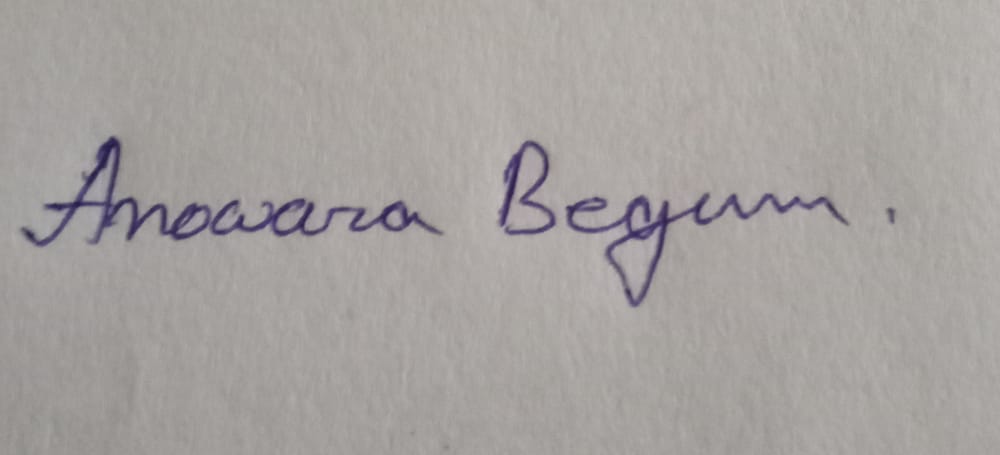 Anowara Begum.